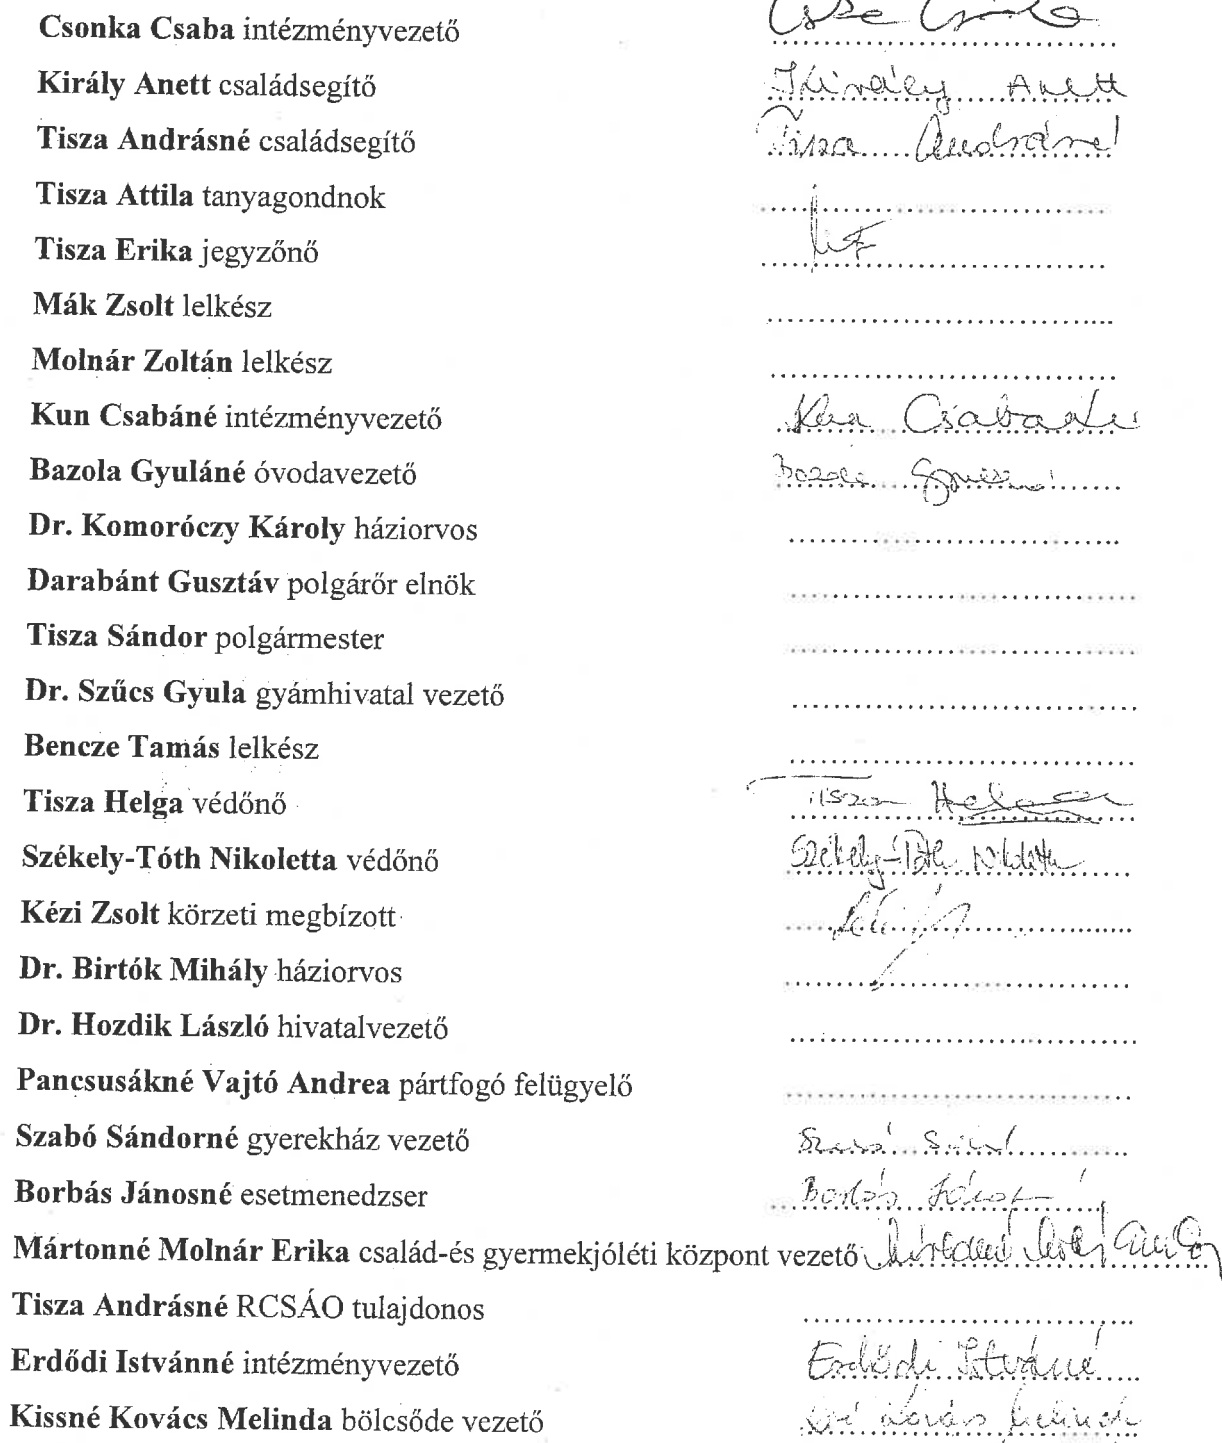 Csonka Csaba intézményvezető
Király Anett családsegítő Király Anett
Tisza Andrásné családsegítő Tisza Andrásné
Tisza Attila tanyagondnok
Tisza Erika jegyzőnő
Mák Zsolt lelkész
Molnár Zoltán lelkész
Kun Csabáné intézményvezető Kun Csabáné
Bazola Gyuláné óvodavezető Bazola Gyuláné
Dr. Komoróczy Károly háziorvos
Darabánt Gusztáv polgárőr elnök
Tisza Sándor polgármester
Dr. Szűcs Gyula gyámhivatal vezető
Bencze Tamás lelkész
Tisza Helga védőnő Tisza Helga
Székely-Tóth Nikoletta védőnő Székely-Tóth Nikoletta
Kézi Zsolt körzeti megbízott
Dr. Birtók Mihály háziorvos
Dr. Hozdik László hivatalvezető
Pancsusákné Vajtó Andrea pártfogó felügyelő
Szabó Sándorné gyerekház vezető Szabó
Borbás Jánosné esetmenedzser Borbás
Mártonné Molnár Erika család-és gyermekjóléti központ vezető
Tisza Andrásné RCSÁO tulajdonos
Erdődi Istvánné intézményvezető Erdődi Istvánné
Kissné Kovács Melinda bölcsőde vezető Kovács Melinda